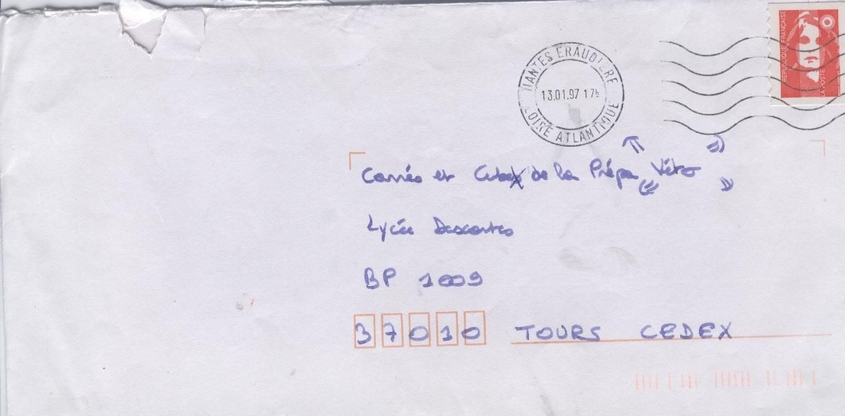 NANTES ERAUDIERE
13.01.97 17h
LOIRE ATLANTIQUE
LA POSTE
Carrés et Cubes de la Prépa Véto
Lycée Descartes
BP 1009
37010 TOURS CEDEX